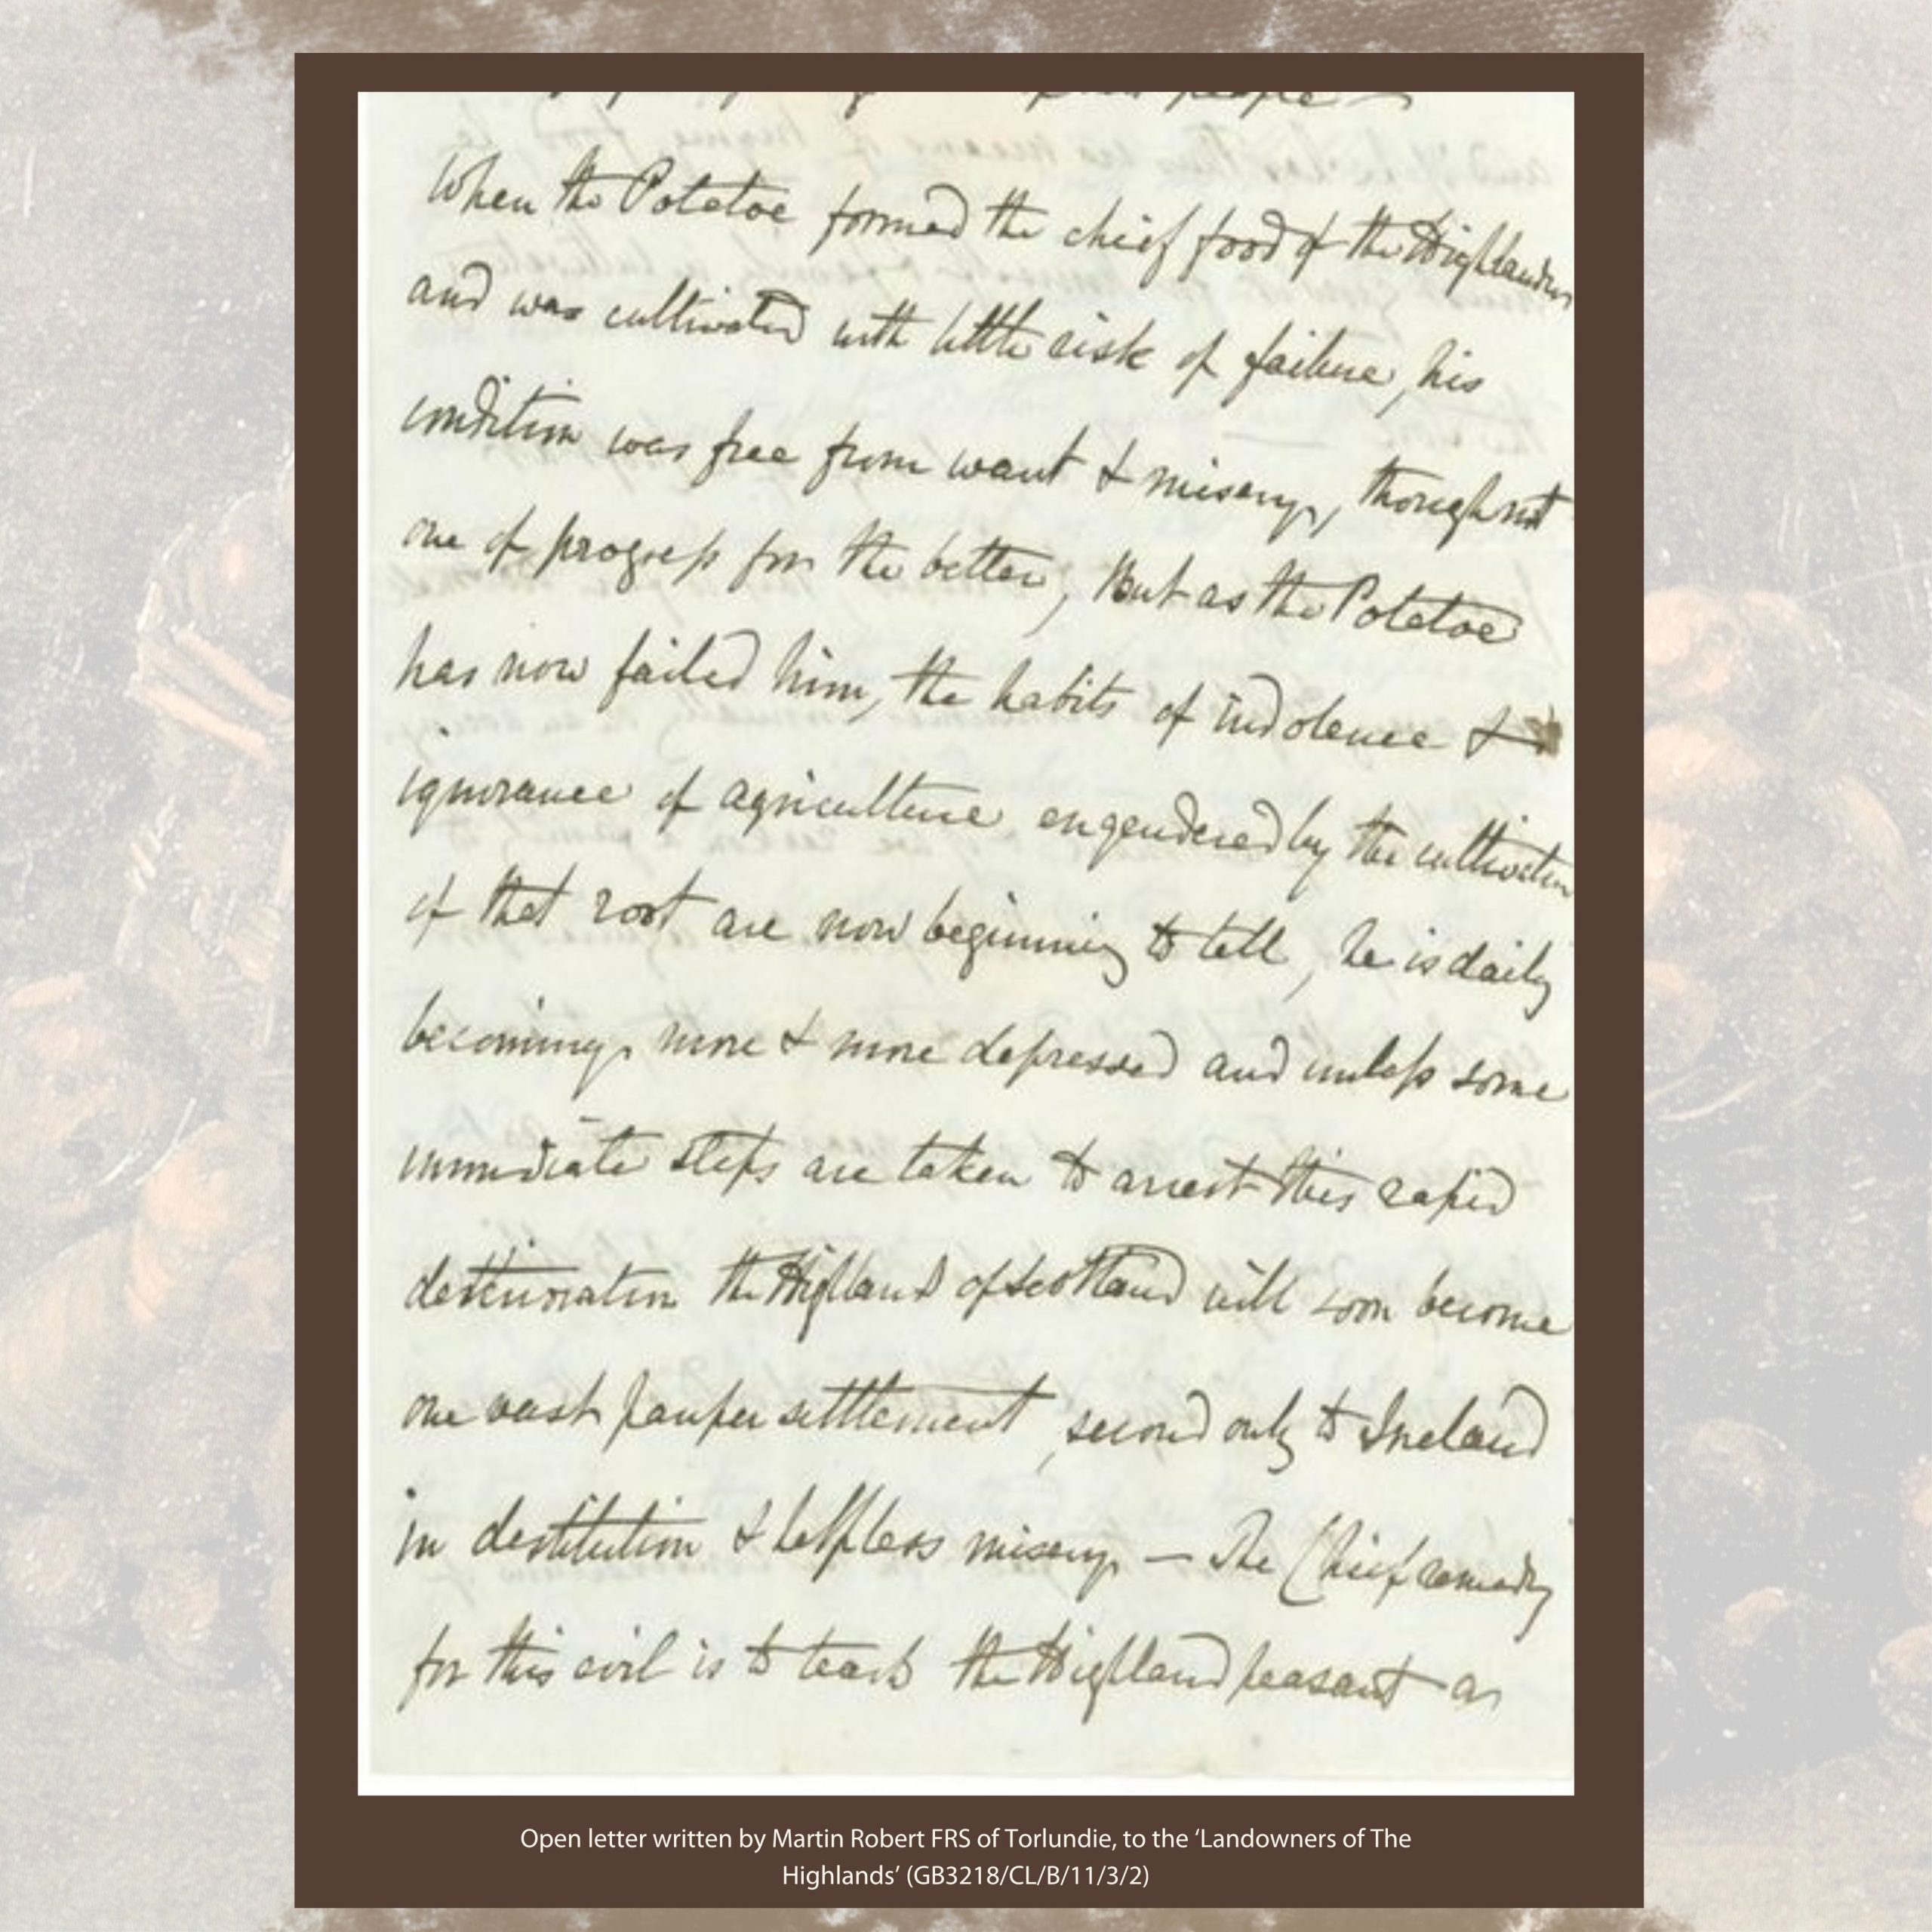 people –
When the Potatoe formed the chief food of the Highlander
and was cultivated with little risk of failure, his
condition was free from want & misery, though not
one of progress for the better, But as the Potatoe
has now failed him, the habits of indolence &
ignorance of agriculture engendered by the cultivation
of that root are now beginning to tell, he is daily
becoming more & more depressed and unless some
immediate steps are taken to arrest this rapid
deterioration the Highland of Scotland will soon become
one vast pauper settlement, second only to Ireland
in destitution & helpless misery – The Chief remedy
for this evil is to teach the Highland peasant as
Open letter written by Martin Robert FRS of Torlundie, to the ‘Landowners of The
Highlands’ (GB3218/CL/B/11/3/2)